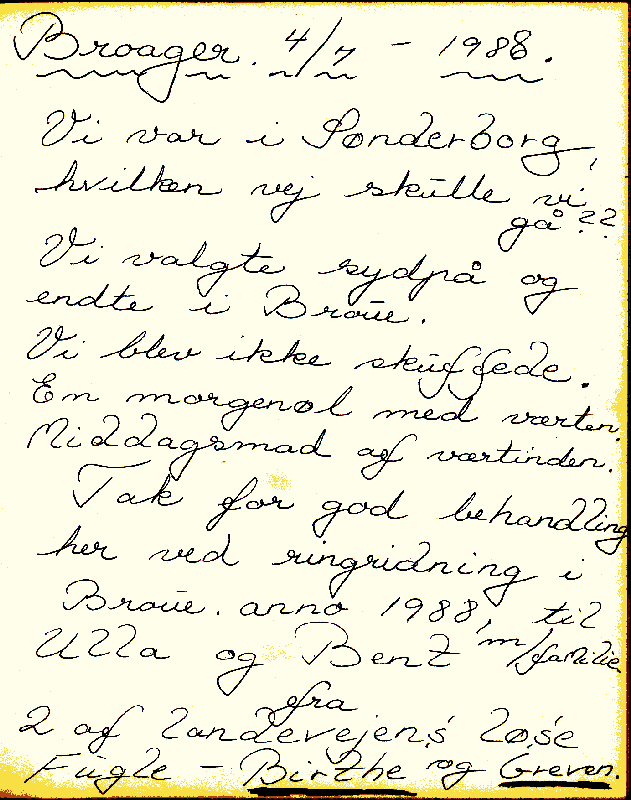 Broager. 4/7 - 1988.
Vi var i Sønderborg,
hvilken vej skulle vi
gå??
Vi valgte sydpå og
endte i Broue.
Vi blev ikke skuffede.
En morgenøl med værten.
Middagsmad af værtinden.
Tak for god behandling
her ved ringridning i
Broue. anno 1988, til
Ulla og Bent m/familie
fra
2 af landevejens løse
Fugle - Birthe og Greven.